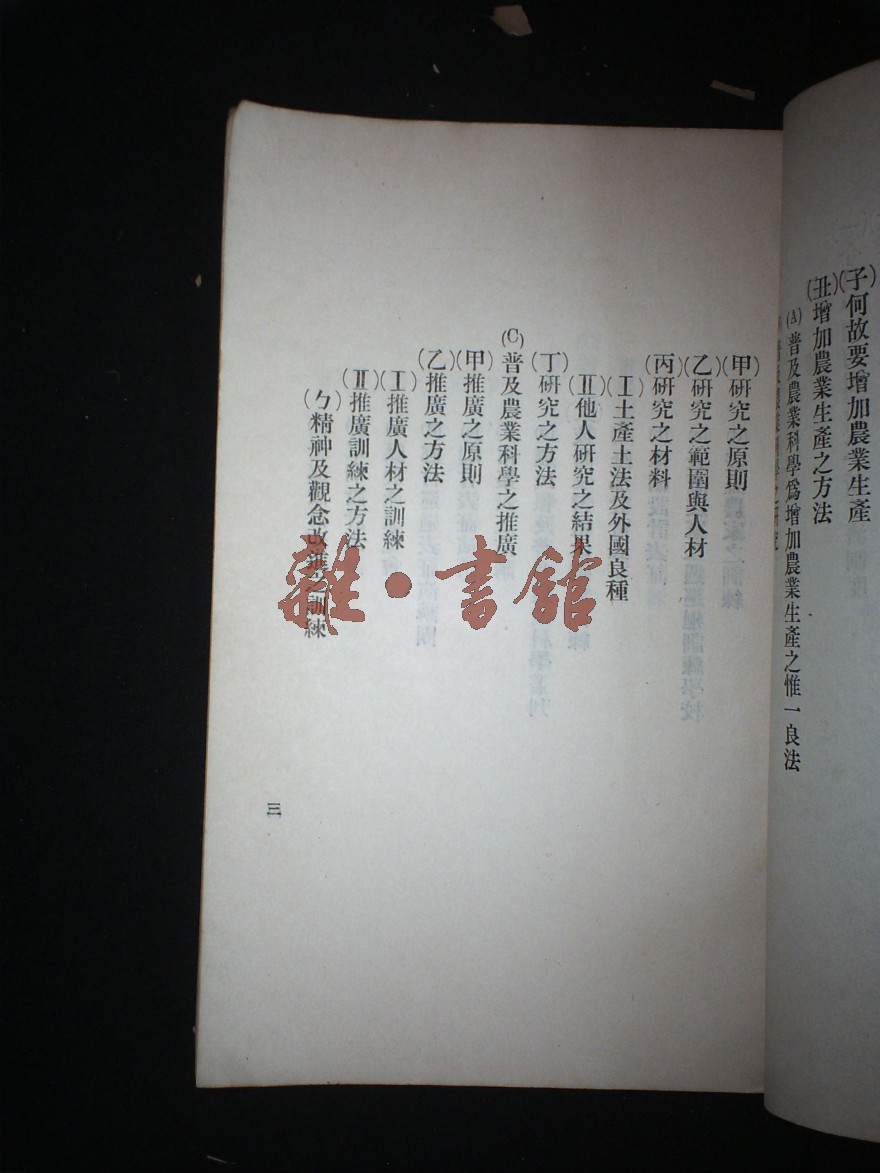 (子)何故要增加農業生產
(丑)增加農業生產之方法
(A)普及農業科學爲增加農業生產之惟一良法
(甲)研究之原則
(乙)研究之範圍與人材
(丙)研究之材料
(I)土產土法及外國良種
(II)他人研究之結果
(丁)研究之方法
(C)普及農業科學之推廣
(甲)推廣之原則
(乙)推廣之方法
(I)推廣人材之訓練
(II)推廣訓練之方法
(ㄅ)精神及觀念改進之訓練
三
雜·書館